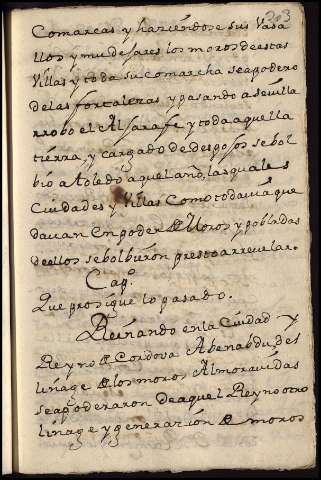 203
Comarcas y haziendose sus Vasa
llos y mudejares los moros de estas
Villas y toda su comarcha se apodero
de las fortalezas y pasando a sevilla
rrobo el Alsarafe y toda aquella
tierra, y cargado de despojos se bol
bio a toledo aquel año, las quales
Ciudades y Villas como todavia que
davan en poder de Moros y pobladas
de ellos se bolburon presto a rrevelar.
Cap.
Que prosigue lo pasado.
Reinando en la Ciudad y
Reyno de Cordova Abenabdu, del
linage de los moros Almoravidas
se apoderaron de aquel Reyno otro
linage y generazion de moros